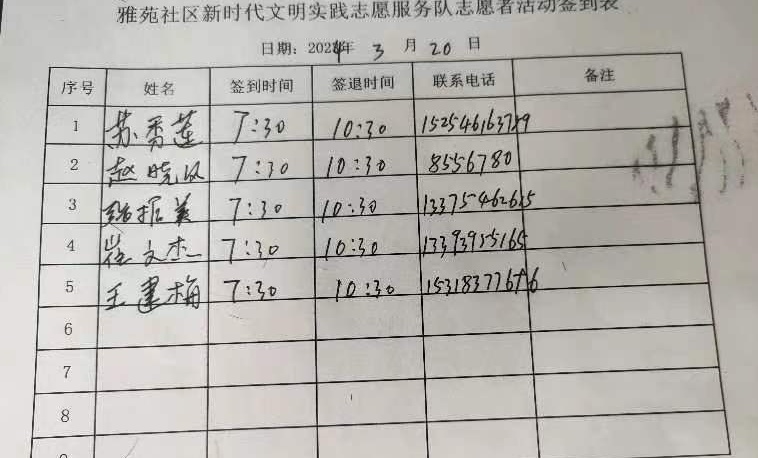 雅苑社区新时代文明实践志愿服务队志愿者活动签到表
日期：2024年 3 月 20 日
序号 姓名 签到时间 签退时间 联系电话 备注
1 苏秀莲 7:30 10:30
2 赵晓汉 7:30 10:30 8556780
3 振美 7:30 10:30 13375462615
4 崔文杰 7:30 10:30 13393955165
5 王建梅 7:30 10:30
6
7
8